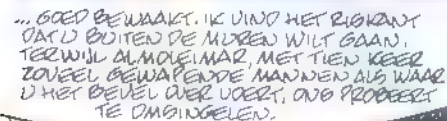 ... GOED BEWAAKT. IK VIND HET RISKANT
DAT U BUITEN DE MUREN WILT GAAN,
TERWIJL ALMOLEIMAR, MET TIEN KEER
ZOVEEL GEWAPENDE MANNEN ALS WAAR
U HET BEVEL OVER VOERT, ONS PROBEERT
TE OMSINGELEN.